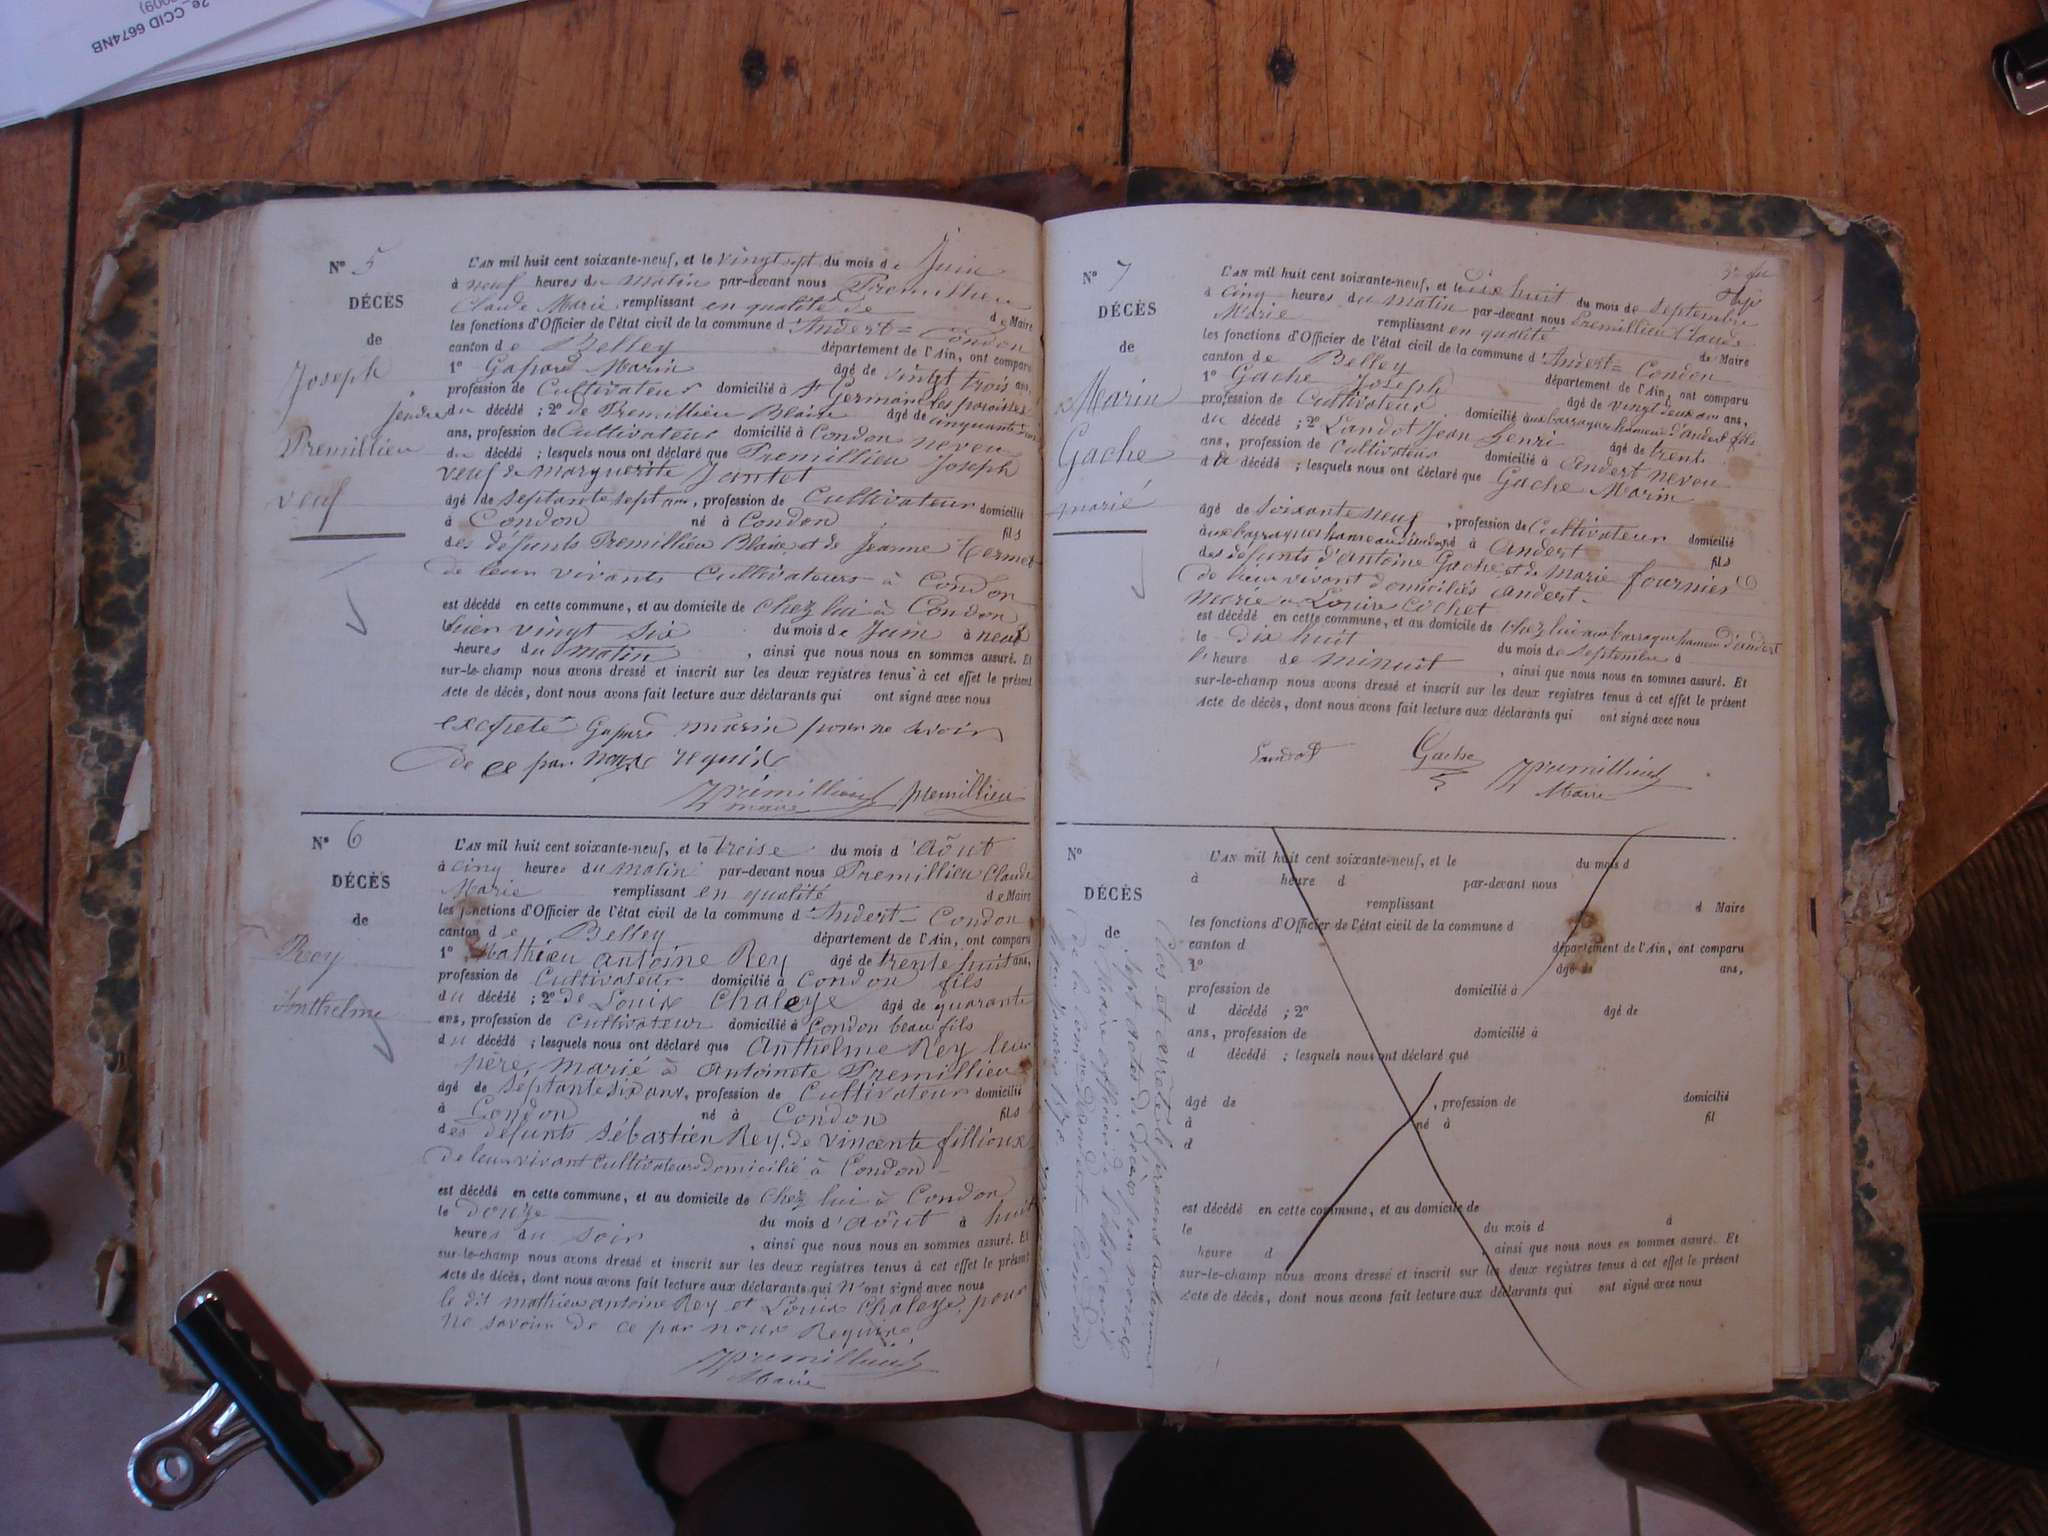 2e. CCID 6674NB
2009)
N° 5
DÉCÈS
de
Joseph
Premillieu
veuf
L'AN mil huit cent soixante-neuf, et le vingt sept du mois de Juin
à neuf heures du matin par-devant nous Premillieu
Claude Marie, remplissant en qualité de
les fonctions d'Officier de l'état civil de la commune d'Andert = Condon de Maire
canton de Belley département de l'Ain, ont comparu
1° Gaspard Marin âgé de vingt trois ans,
profession de Cultivateur domicilié à St Germain les paroisses
gendre du décédé ; 2° de Premillieu Blaise âgé de cinquante
ans, profession de Cultivateur domicilié à Condon neveu
du décédé ; lesquels nous ont déclaré que Premillieu Joseph
veuf de marguerite Jantet
âgé de septante sept ans, profession de Cultivateur domicilié
à Condon né à Condon fils
des défunts Premillieu Blaise et de Jeanne
de leur vivants Cultivateurs à Condon
est décédé en cette commune, et au domicile de chez lui à Condon
hier vingt six du mois de Juin à neuf
heures du matin, ainsi que nous nous en sommes assuré. Et
sur-le-champ nous avons dressé et inscrit sur les deux registres tenus à cet effet le présent
Acte de décès, dont nous avons fait lecture aux déclarants qui ont signé avec nous
excepté Gaspard marin pour ne savoir
de ce par nous requis
Premillieu premillieu
maire
N° 6
DÉCÈS
de
Rey
Anthelme
L'AN mil huit cent soixante-neuf, et le treise du mois d'Aôut
à cinq heures du matin par-devant nous Premillieu Claude
Marie remplissant en qualité de Maire
les fonctions d'Officier de l'état civil de la commune d'Andert = Condon
canton de Belley département de l'Ain, ont comparu
1° Mathieu antoine Rey âgé de trente huit ans,
profession de Cultivateur domicilié à Condon fils
du décédé ; 2° de Louis Chaleye âgé de quarante
ans, profession de Cultivateur domicilié à Condon beau fils
du décédé ; lesquels nous ont déclaré que Anthelme Rey leur
père, marié à Antoinete Premillieu
âgé de septante six ans, profession de Cultivateur domicilié
à Condon né à Condon fils
des défunts Sébastien Rey, de vincente fillioux
de leur vivant Cultivateurs domicilié à Condon
est décédé en cette commune, et au domicile de chez lui à Condon
le douze du mois d'aôut à huit
heures du soir, ainsi que nous nous en sommes assuré. Et
sur-le-champ nous avons dressé et inscrit sur les deux registres tenus à cet effet le présent
Acte de décès, dont nous avons fait lecture aux déclarants qui n'ont signé avec nous
le dit mathieu antoine Rey et Louis Chaleye, pour
ne savoir de ce par nous Requis,
Premillieu
Maire
N° 7
DÉCÈS
de
Marin
Gache
marié
L'AN mil huit cent soixante-neuf, et le dix huit du mois de Septembre
à cinq heures du matin par-devant nous Premillieu Claude
Marie remplissant en qualité de Maire
les fonctions d'Officier de l'état civil de la commune d'Andert = Condon
canton de Belley département de l'Ain, ont comparu
1° Gache Joseph âgé de vingt deux ans ans,
profession de Cultivateur domicilié aux barraques hameau d'Andert fils
du décédé ; 2° Landot Jean henri âgé de trente
ans, profession de Cultivateur domicilié à Andert neveu
du décédé ; lesquels nous ont déclaré que Gache Marin
âgé de soixante neuf, profession de Cultivateur domicilié
aux barraques hameau d'andert né à Andert fils
des défunts d'antoine Gache et de Marie fournier
de leur vivant domiciliés Andert
marié a Louise Cochet
est décédé en cette commune, et au domicile de chez lui aux barraques hameau d'andert
le dix huit du mois de septembre à
l'heure de minuit, ainsi que nous nous en sommes assuré. Et
sur-le-champ nous avons dressé et inscrit sur les deux registres tenus à cet effet le présent
Acte de décès, dont nous avons fait lecture aux déclarants qui ont signé avec nous
Landot Gache Premillieu
Maire
N°
DÉCÈS
de
L'AN mil huit cent soixante-neuf, et le du mois d
à heure d par-devant nous
remplissant d Maire
les fonctions d'Officier de l'état civil de la commune d
canton d département de l'Ain, ont comparu
1° âgé de ans,
profession de domicilié à
d décédé ; 2° âgé de
ans, profession de domicilié à
d décédé ; lesquels nous ont déclaré que
âgé de, profession de domicilié
à né à fil
d
est décédé en cette commune, et au domicile de
le du mois d à
heure d, ainsi que nous nous en sommes assuré. Et
sur-le-champ nous avons dressé et inscrit sur les deux registres tenus à cet effet le présent
Acte de décès, dont nous avons fait lecture aux déclarants qui ont signé avec nous
Clos et arrêté le présent contenant
sept actes de décès par nous
Maire officier de l'état civil
de la commune d'andert Condon
Janvier 1870